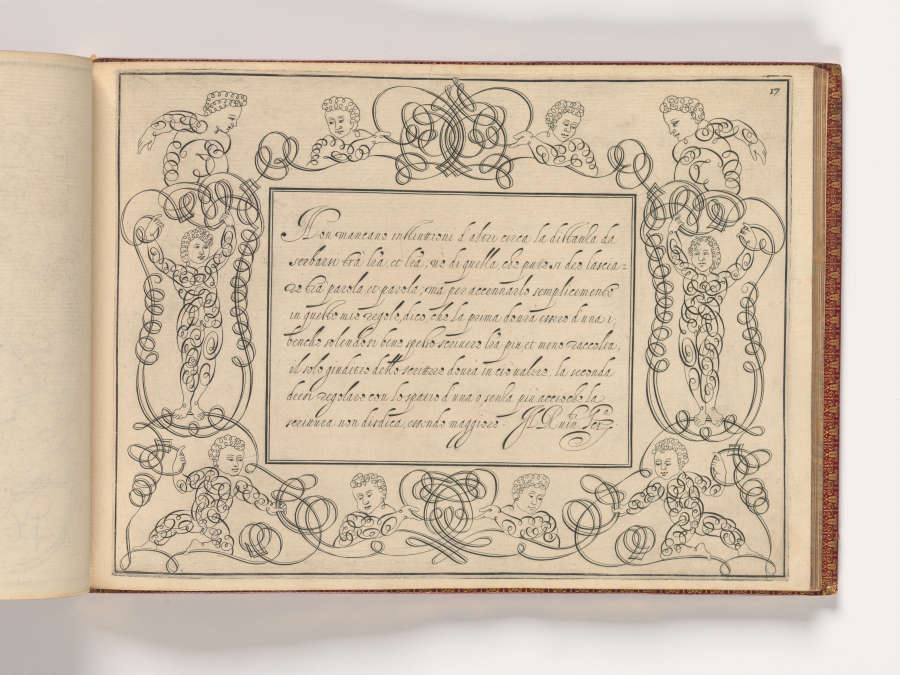 17
Non mancano instruttioni d'altri circa la distanza da
serbarsi trà l'rã, et l'rã, nõ di quella, che pure si deo lascia=
re trà parola, et parola, ma per accennarlo semplicemente
in questo mio regole, dico, che la prima dourà essere d'una i
benche solendosi bene spesso scriuere l'rã piu, et meno raccolta,
il solo giuditio dello scrittore dourà in cio ualere, la seconda
deesi regolare con lo spatio d'una senza più accioche la
scrittura non disdica, essendo maggiore.